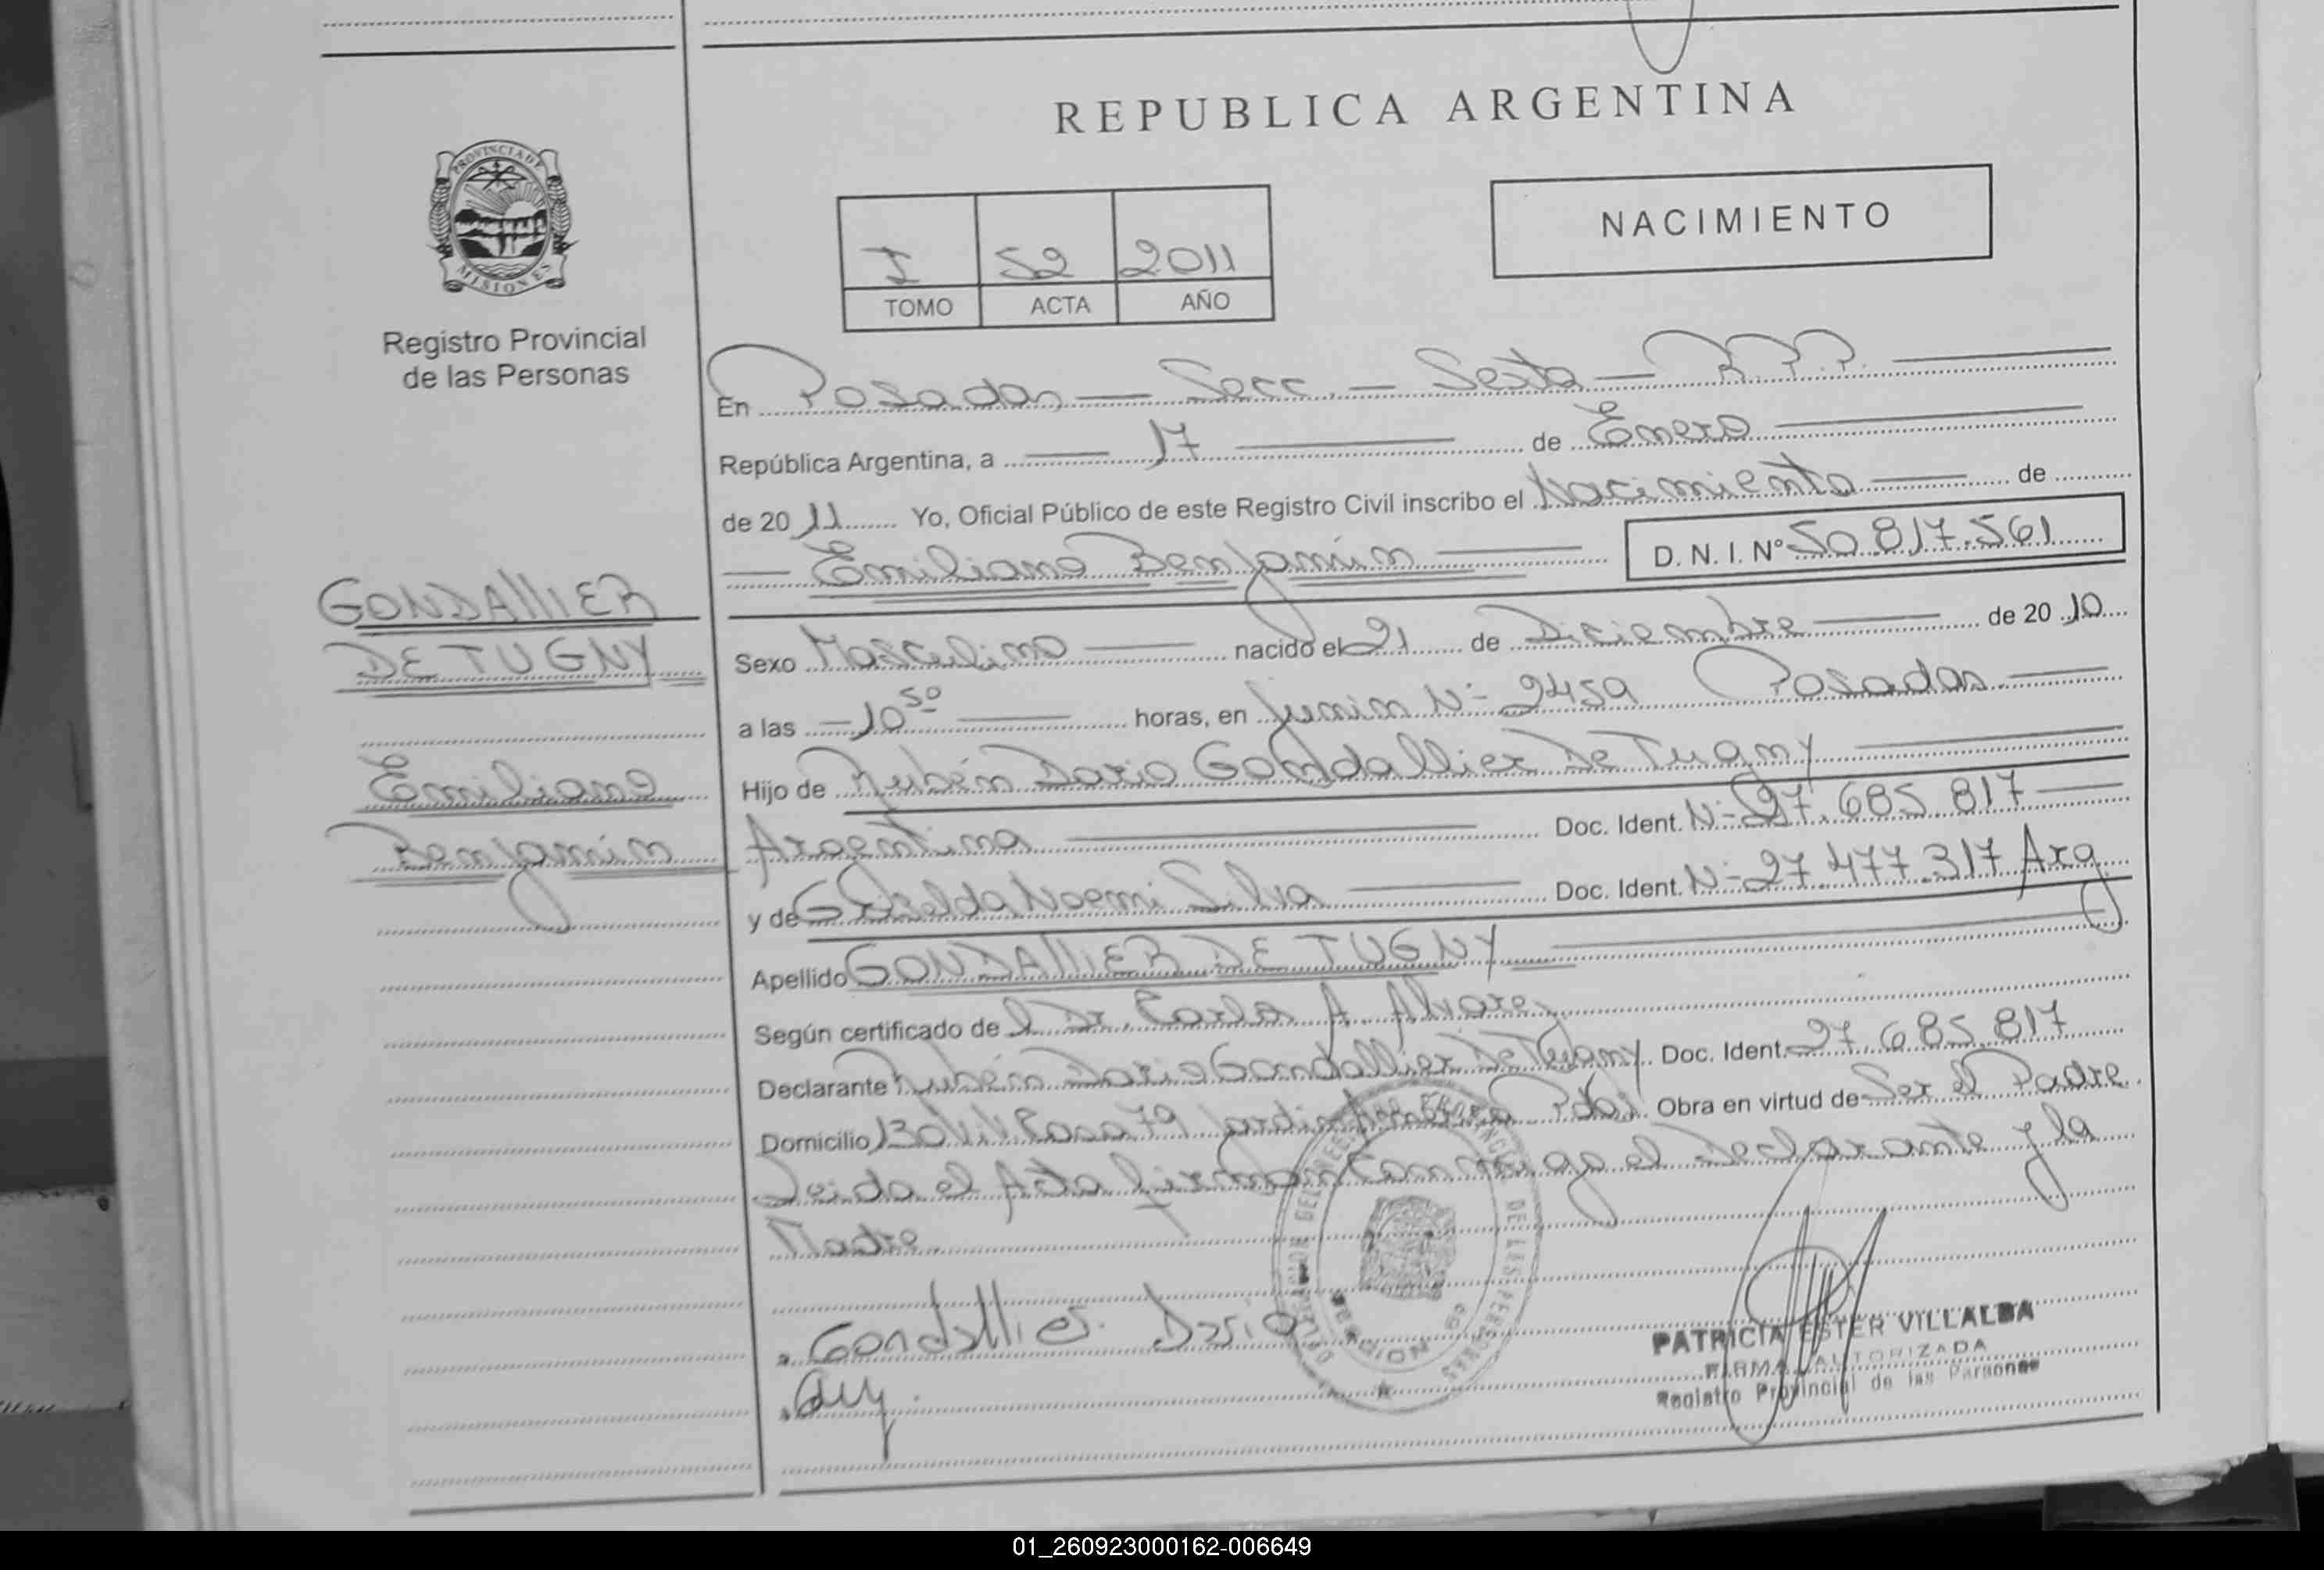 REPUBLICA ARGENTINA
PROVINCIA DE
MISIONES
Registro Provincial
de las Personas
NACIMIENTO
I 52 2011
TOMO ACTA AÑO
En Posadas — Secc. — Sexta — R.P.P.
República Argentina, a — 17 — de Enero
de 2011 Yo, Oficial Público de este Registro Civil inscribo el Nacimiento — de
— Emiliano Benjamín — D. N. I. Nº 50.817.561
GONDALLIER
DE TUGNY
Emiliano
Benjamín
Sexo Masculino — nacido el 21 de Diciembre — de 2010
a las — 10 50 — horas, en Junin Nº 2459 Posadas —
Hijo de Rubén Dario Gondallier De Tugny —
Argentino — Doc. Ident. Nº 27.685.817 —
y de Griselda Noemi Silva — Doc. Ident. Nº 27.477.317 Arg
Apellido GONDALLIER DE TUGNY —
Según certificado de el Dr. Carlos A. Alvarez
Declarante Rubén Dario Gondallier De Tugny Doc. Ident. 27.685.817
Domicilio 130 Viv. Casa 79 Pdas. Obra en virtud de Ser el Padre.
Leida el Acta firman conmigo el Declarante y la
Madre.
Gondallier Dario
PATRICIA ESTER VILLALBA
FIRMA AUTORIZADA
Registro Provincial de las Personas
01_260923000162-006649